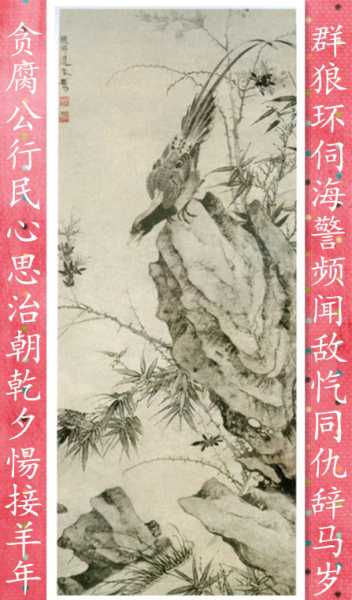 群狼环伺海警频闻敌忾同仇辞马岁
贪腐公行民心思治朝乾夕惕接羊年